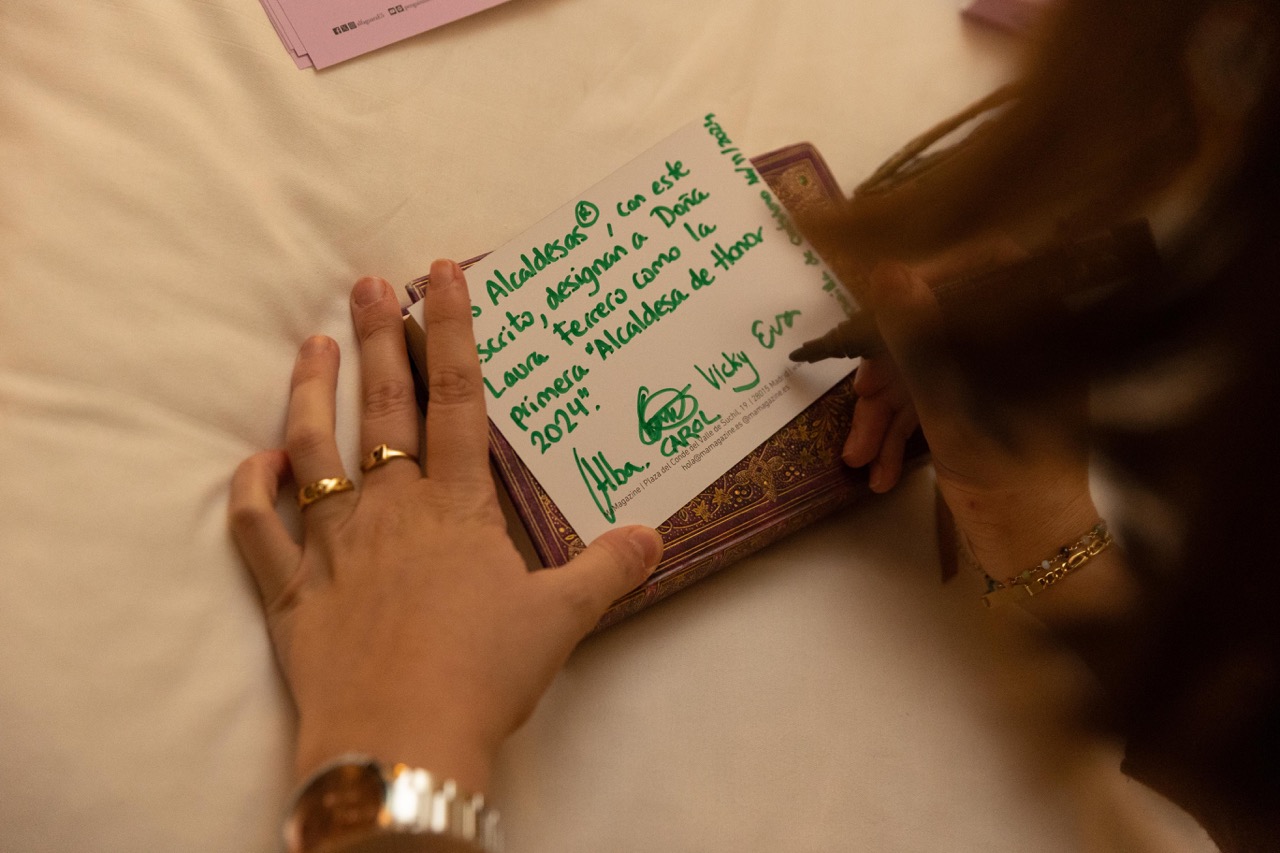 Alcaldesas®, con este
scrito, designan a Doña
Laura Ferrero como la
primera "Alcaldesa de Honor
2024".
Alba. CAROL Vicky Eva
Magazine | Plaza del Conde del Valle de Suchil, 19. | 28015 Madrid
hola@mamagazine.es @mamagazine.es